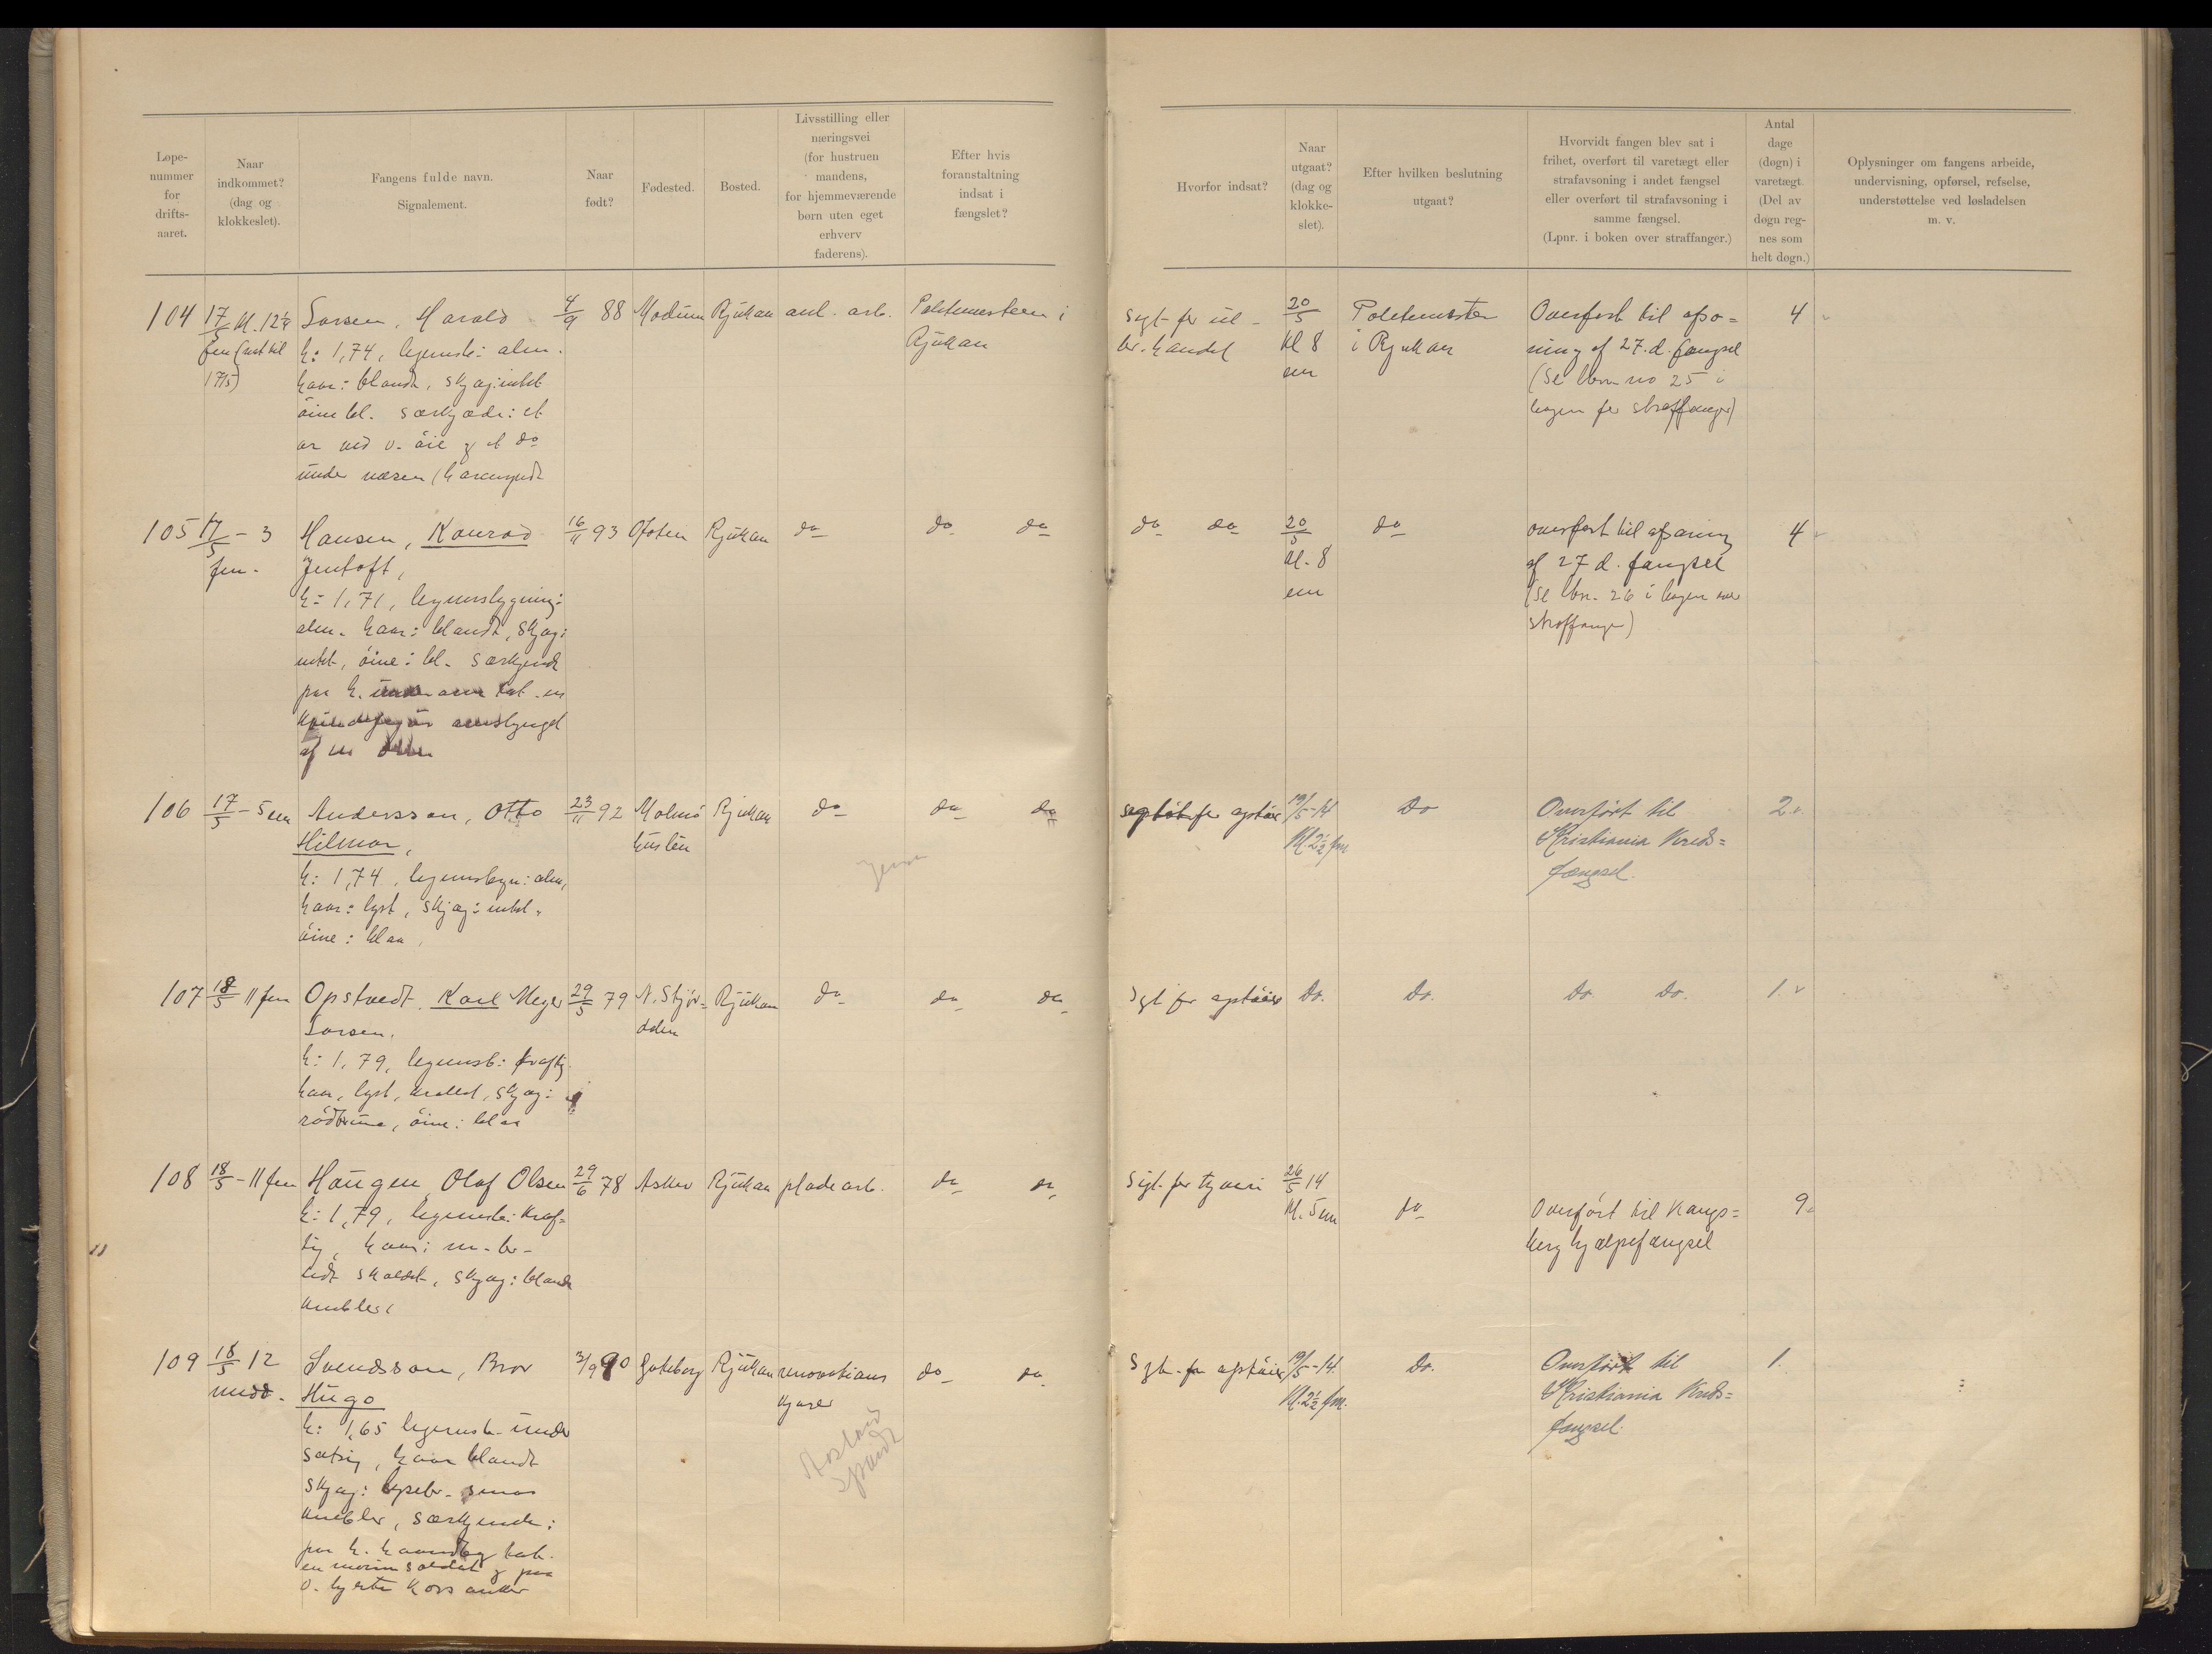 Løpe-
nummer
for
drifts-
aaret.
Naar
indkommet?
(dag og
klokkeslet).
Fangens fulde navn.
Signalement.
Naar
født?
Fødested.
Bosted.
Livsstilling eller
næringsvei
(for hustruen
mandens,
for hjemmeværende
børn uten eget
erhverv
faderens).
Efter hvis
foranstaltning
indsat i
fængslet?
Hvorfor indsat?
Naar
utgaat?
(dag og
klokke-
slet).
Efter hvilken beslutning
utgaat?
Hvorvidt fangen blev sat i
frihet, overført til varetægt eller
strafavsoning i andet fængsel
eller overført til strafavsoning i
samme fængsel.
(Lpnr. i boken over straffanger.)
Antal
dage
(døgn) i
varetægt.
(Del av
døgn reg-
nes som
helt døgn.)
Oplysninger om fangens arbeide,
undervisning, opførsel, refselse,
understøttelse ved løsladelsen
m. v.
104
17/5 kl. 12 1/4
fm (nat til
17/5)
Larsen, Harald
h: 1,74, legemsb: alm.
haar: blandt, skjæg: intet
öine bl. særkjende: et
ar ved v. öie og et do
under næsen
4/9 88
Modum
Rjukan
anl. arb.
Politimesteren i
Rjukan
Sigt. for ul-
br. handel
20/5
kl 8
em
Politimester
i Rjukan
Overført til afso-
ning af 27. d. fængsel
(Se lbnr no 25 i
bogen for straffanger)
4
105
17/5 - 3
fm.
Hansen, Konrad
Jentoft,
h: 1,71, legemsbygning:
alm. haar: blandt, skjæg:
intet, öine: bl. særkjende
paa h. underarm tat. en
kvindefigur omslynget
af en
16/11 93
Ofoten
Rjukan
do
do
do
do
do
20/5
kl. 8
em
do
overført til afsoning
af 27 d. fængsel
(Se lbn. 26 i bogen over
straffanger)
4
106
17/5 - 5 em
Andersson, Otto
Hilmar,
h: 1,74, legemsbyn: alm,
haar: lyst, skjæg: intet.
öine: blaa.
23/11 92
Malmö
huslän
Rjukan
do
do
do
sigtet for optöier
19/5-14
Kl. 2 1/2 fm.
Do
Overført til
Kristiania Kreds-
fængsel.
2.
107
18/5 11 fm
Opstvedt, Karl Meyer
Larsen.
h: 1,79, legemsb: kraftig
haar, lyst, krøllet, skjæg:
rödbrune, öine: blaa
29/5 79
N. Stjör-
dalen
Rjukan
do
do
do
Sgt for optöier
Do.
Do.
Do. Do.
1.
108
18/5 - 11 fm
Haugen, Olaf Olsen
h: 1,79, legemsb: kraf-
tig, haar: m-br-
lidt skaldet, skjæg: blande
knebler
29/6 78
Asker
Rjukan
pladearb.
do
do
Sigt. for tyveri
26/5 14
Kl. 5 em
do
Overført til Kongs-
berg hjælpefængsel
9
109
18/5 12
midd.
Svendsson, Bror
Hugo
h: 1,65 legemsb. under
sætsig, haar blandt
skjæg: lysebr. smaa
knebler, særkjende:
paa h. haandbag tat.
en marinsoldat og paa
v. hjerte kors anker
3/9 90
Gøteborg
Rjukan
renovations
kjører
do
do
Sgt. for optöier
19/5-14.
Kl. 2 1/2 fm.
Do.
Overført til
Kristiania Kreds-
fængsel.
1.